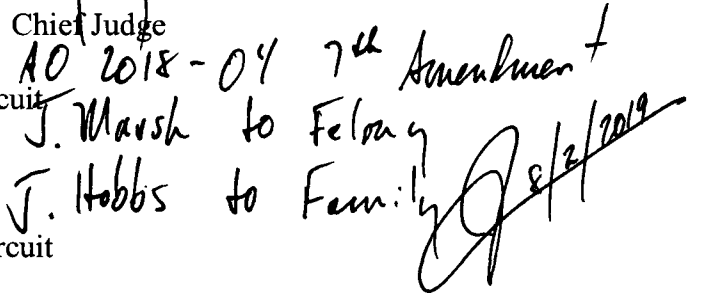 Chief Judge
AO 2018-04 7th Amendment
cuit
J. Marsh to Felony
J. Hobbs to Family 8/2/2019
rcuit